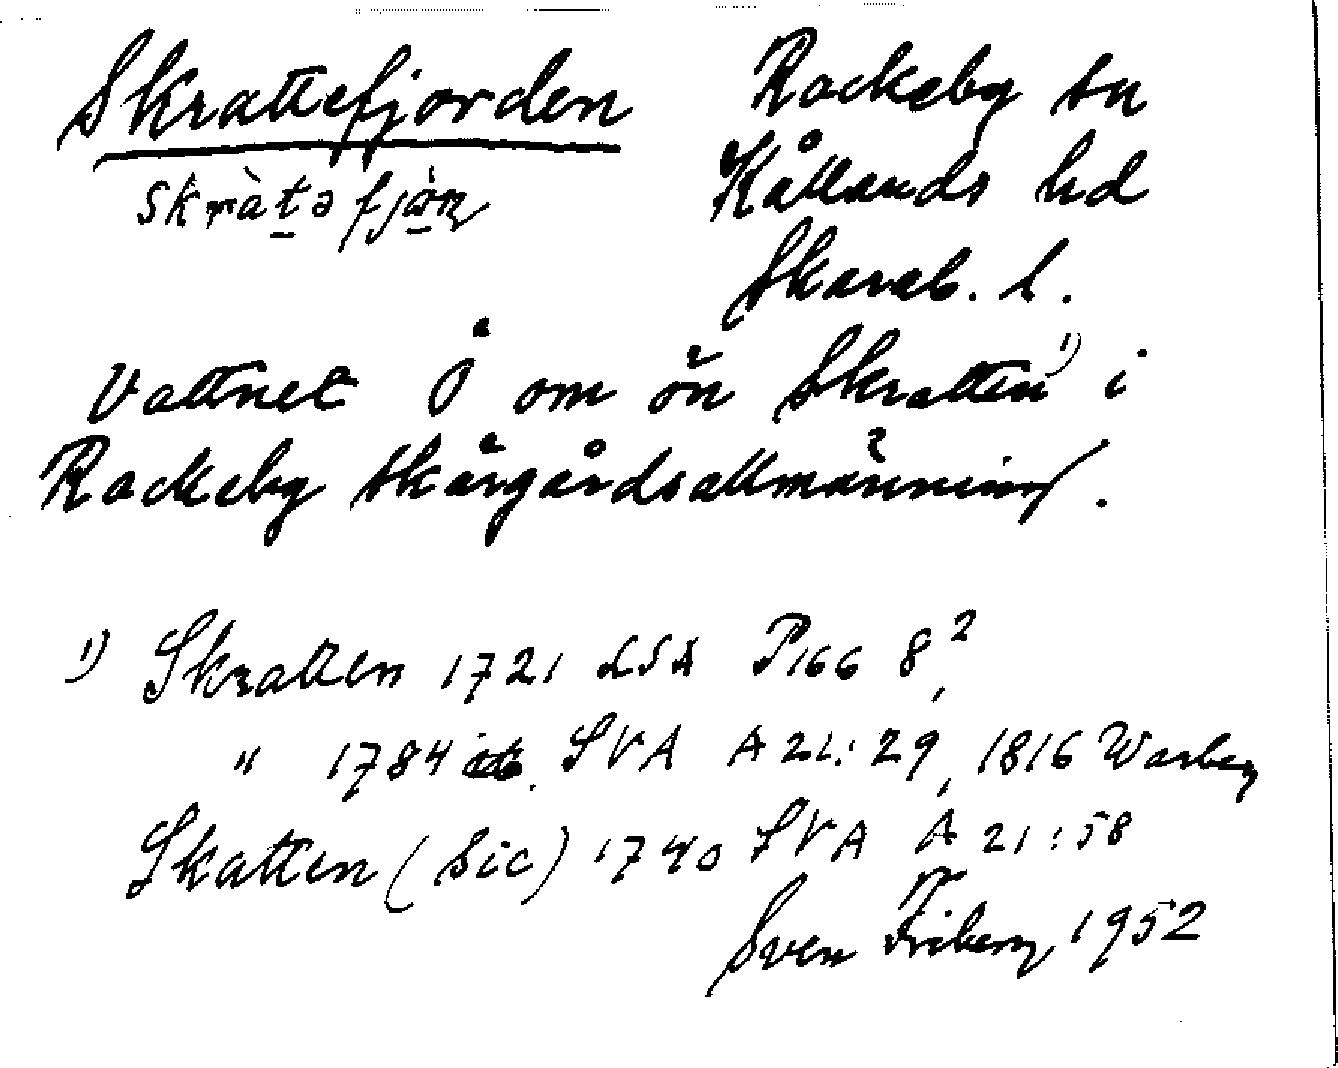 Skrattefjorden
skràtə fjȯ̀n
Rackeby sn
Kållands hd
Skarab. l.
Vattnet Ö om ön Skratten ¹⁾ i
Rackeby skärgårdsallmänning.
¹⁾ Skratten 1721 LSA P166 8²,
" 1784 SVA A 21:29, 1816 Warberg
Skatten (sic) 1740 SVA A 21:58
Sven Friberg 1952